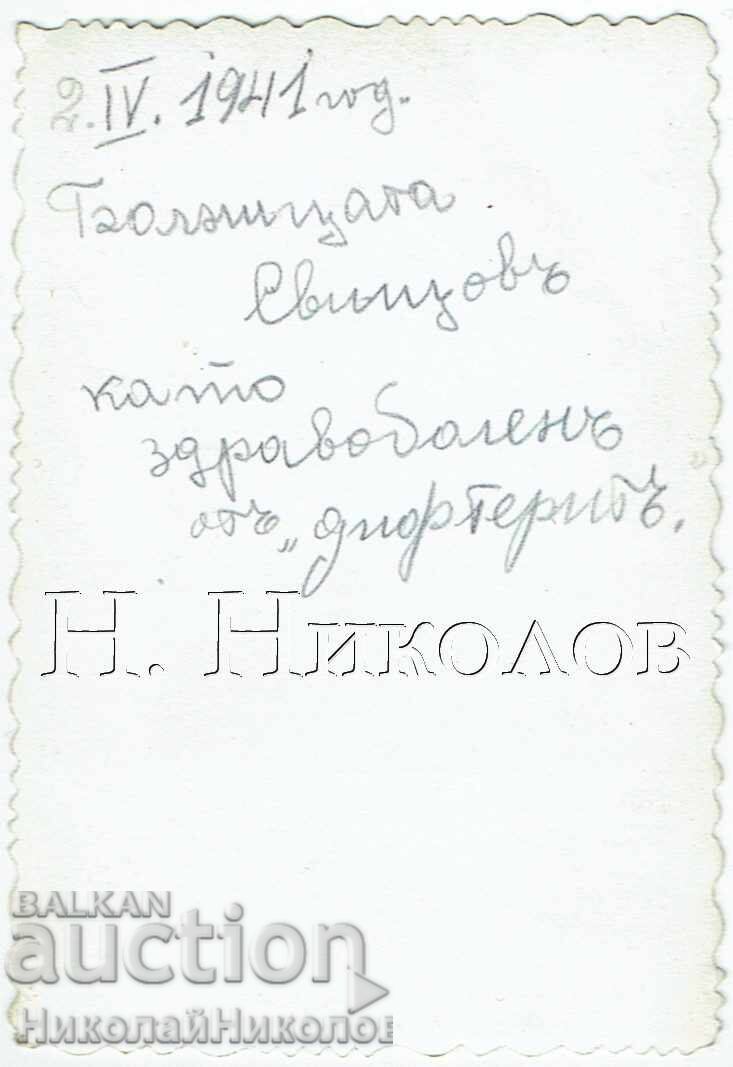 2.IV.1941 год.
Болницата
Свищовъ
като
здравоболенъ
отъ „дифтеритъ.
Н. Николов
BALKAN
auction
НиколайНиколов